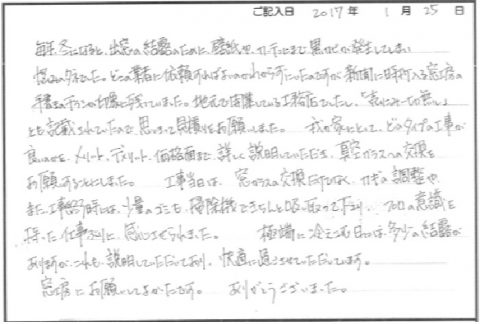 ご記入日 2017年 1月 25日
毎年冬になると、出窓の結露のために、壁紙や、カーテンにまで黒カビが発生してしまい
悩みのタネでした。どこの業者に依頼すればよいのかわからずにいたのですが新聞に時折入る窓工房の
手書きのチラシが印象に残っていました。地元で営業している工務店でしたし、「売り込み一切無し」
とも記載されていたので、思い切って見積りをお願いしました。 我が家にとって、どのタイプの工事が
良いのかを、メリット、デメリット、価格面まで、詳しく説明していただき、真空ガラスへの交換を
お願いすることにしました。 工事当日は、窓ガラスの交換だけでなく、カギの調整や
また工事終了時には、少量のゴミも、掃除機できちんと吸い取って下さり、プロの意識を
持った仕事ぶりに、感心させられました。 極端に冷えこむ日には、多少の結露が
ありますが、これも、説明していただいており、快適に過ごさせていただいています。
窓工房にお願いしてよかったです。 ありがとうございました。